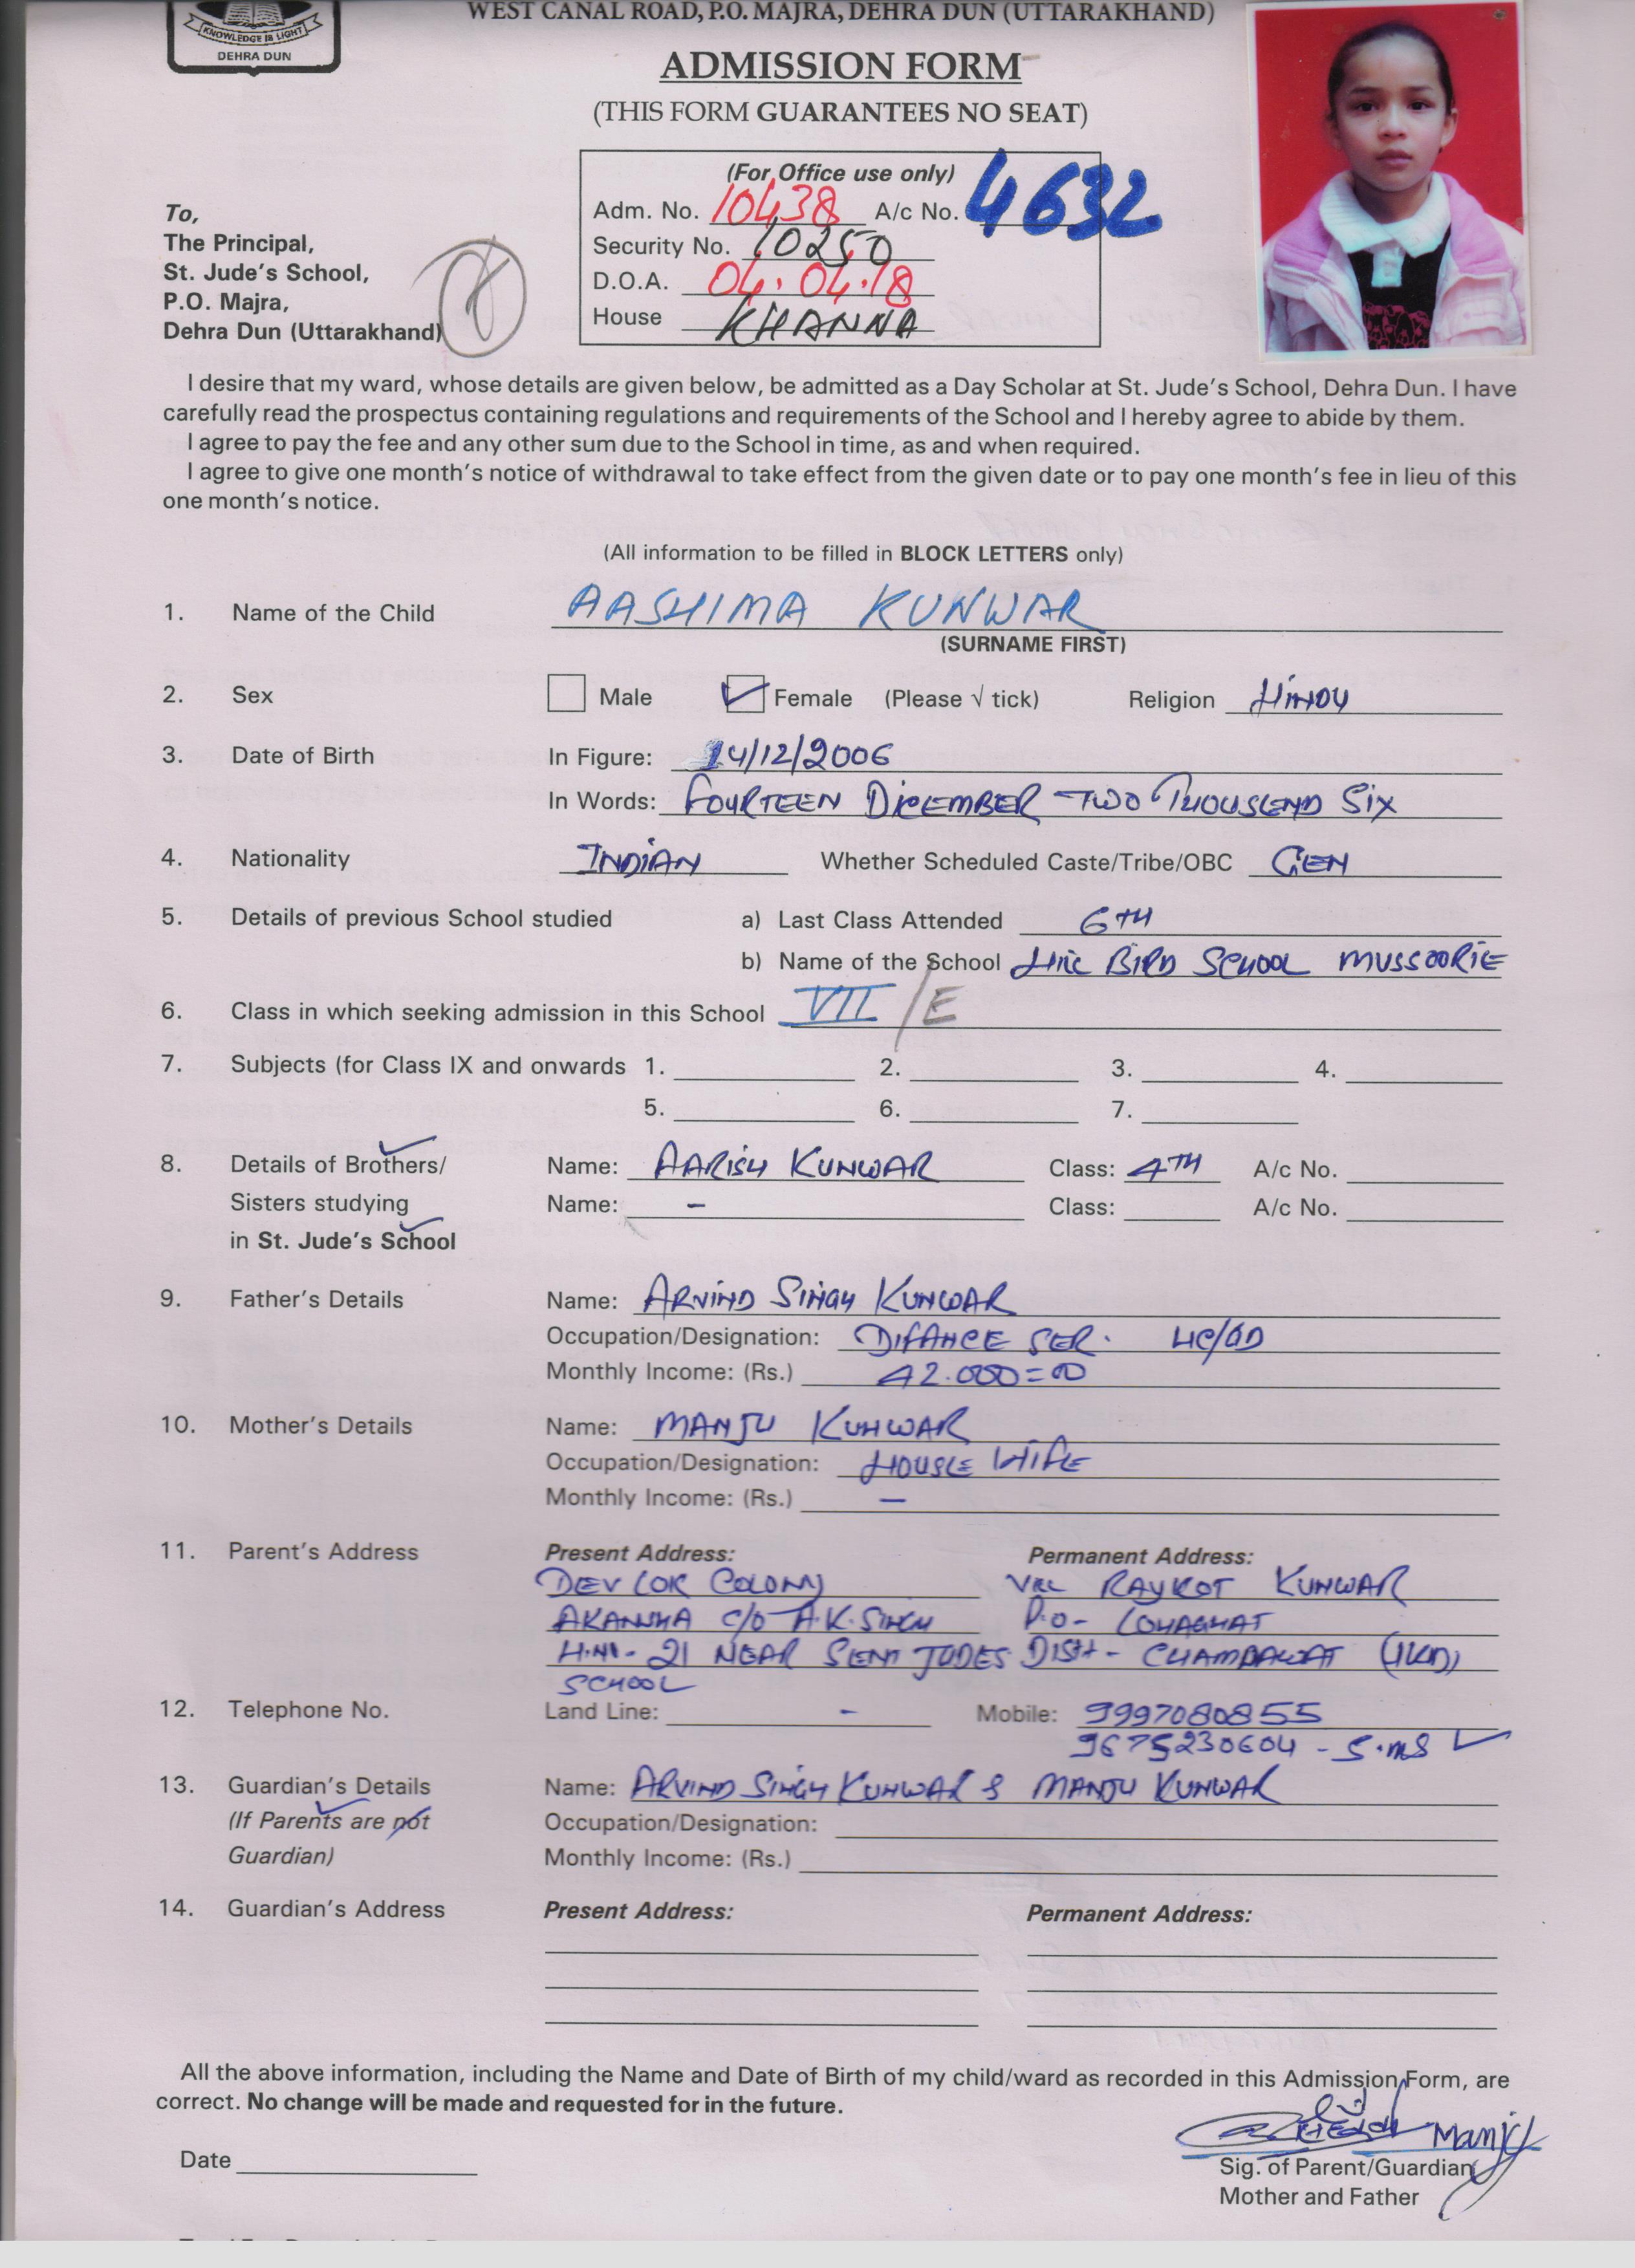 WEST CANAL ROAD, P.O. MAJRA, DEHRA DUN (UTTARAKHAND)
KNOWLEDGE IS LIGHT
DEHRA DUN
ADMISSION FORM
(THIS FORM GUARANTEES NO SEAT)
(For Office use only)
Adm. No. 10438 A/c No. 4632
Security No. 10250
D.O.A. 04.04.18
House KHANNA
To,
The Principal,
St. Jude's School,
P.O. Majra,
Dehra Dun (Uttarakhand)
8
I desire that my ward, whose details are given below, be admitted as a Day Scholar at St. Jude's School, Dehra Dun. I have
carefully read the prospectus containing regulations and requirements of the School and I hereby agree to abide by them.
I agree to pay the fee and any other sum due to the School in time, as and when required.
I agree to give one month's notice of withdrawal to take effect from the given date or to pay one month's fee in lieu of this
one month's notice.
(All information to be filled in BLOCK LETTERS only)
1. Name of the Child AASHIMA KUNWAR
(SURNAME FIRST)
2. Sex Male Female (Please √ tick) Religion HINDU
3. Date of Birth In Figure: 14/12/2006
In Words: FOURTEEN DICEMBER TWO THOUSEND SIX
4. Nationality INDIAN Whether Scheduled Caste/Tribe/OBC GEN
5. Details of previous School studied a) Last Class Attended 6TH
b) Name of the School BIRD SCHOOL MUSSOORIE
6. Class in which seeking admission in this School VII /E
7. Subjects (for Class IX and onwards 1. 2. 3. 4.
5. 6. 7.
8. Details of Brothers/ Name: AARISH KUNWAR Class: 4TH A/c No.
Sisters studying Name: - Class: A/c No.
in St. Jude's School
9. Father's Details Name: ARVIND SINGH KUNWAR
Occupation/Designation: DIFANCE SER. HC/GD
Monthly Income: (Rs.) 42.000=00
10. Mother's Details Name: MANJU KUNWAR
Occupation/Designation: HOUSE WIFE
Monthly Income: (Rs.) -
11. Parent's Address Present Address: Permanent Address:
DEV LOK COLONY VILL RAYKOT KUNWAR
AKANSHA C/O A.K. SINGH P.O- LOHAGHAT
H.NO- 21 NEAR SENT JUDES DISTT- CHAMPAWAT (UKD)
SCHOOL
12. Telephone No. Land Line: - Mobile: 9997080855
9675230604 - S.MS
13. Guardian's Details Name: ARVIND SINGH KUNWAR & MANJU KUNWAR
(If Parents are not Occupation/Designation:
Guardian) Monthly Income: (Rs.)
14. Guardian's Address Present Address: Permanent Address:
All the above information, including the Name and Date of Birth of my child/ward as recorded in this Admission Form, are
correct. No change will be made and requested for in the future.
Manju
Date
Sig. of Parent/Guardian
Mother and Father